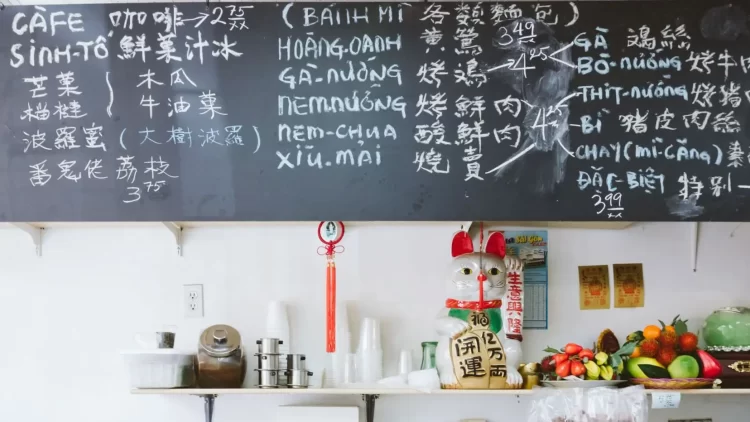 CÀFE 咖啡→2 75/xx
SINH-TỐ 鮮菓汁冰
芒菓 木瓜
榴槤 牛油菓
波羅蜜(大樹波羅)
番鬼佬荔枝
3 75
(BÁNH MÌ 各類麵包)
HOÀNG-OANH 黃鶯 3 49/xx
GÀ-NƯỚNG 烤鴻 4 25
NEM NƯỚNG 烤鮮肉
NEM-CHUA 酸鮮肉 4 25
XIU-MAI 燒賣
GÀ 鴻絲
BÒ-NƯỚNG 烤牛肉
THỊT-NƯỚNG 烤猪
BÌ 猪皮肉絲
CHAY (MÌ-CĂNG) 素
ĐẶC-BIỆT 特別
3 99/xx
生意興隆
福
億万両
開運